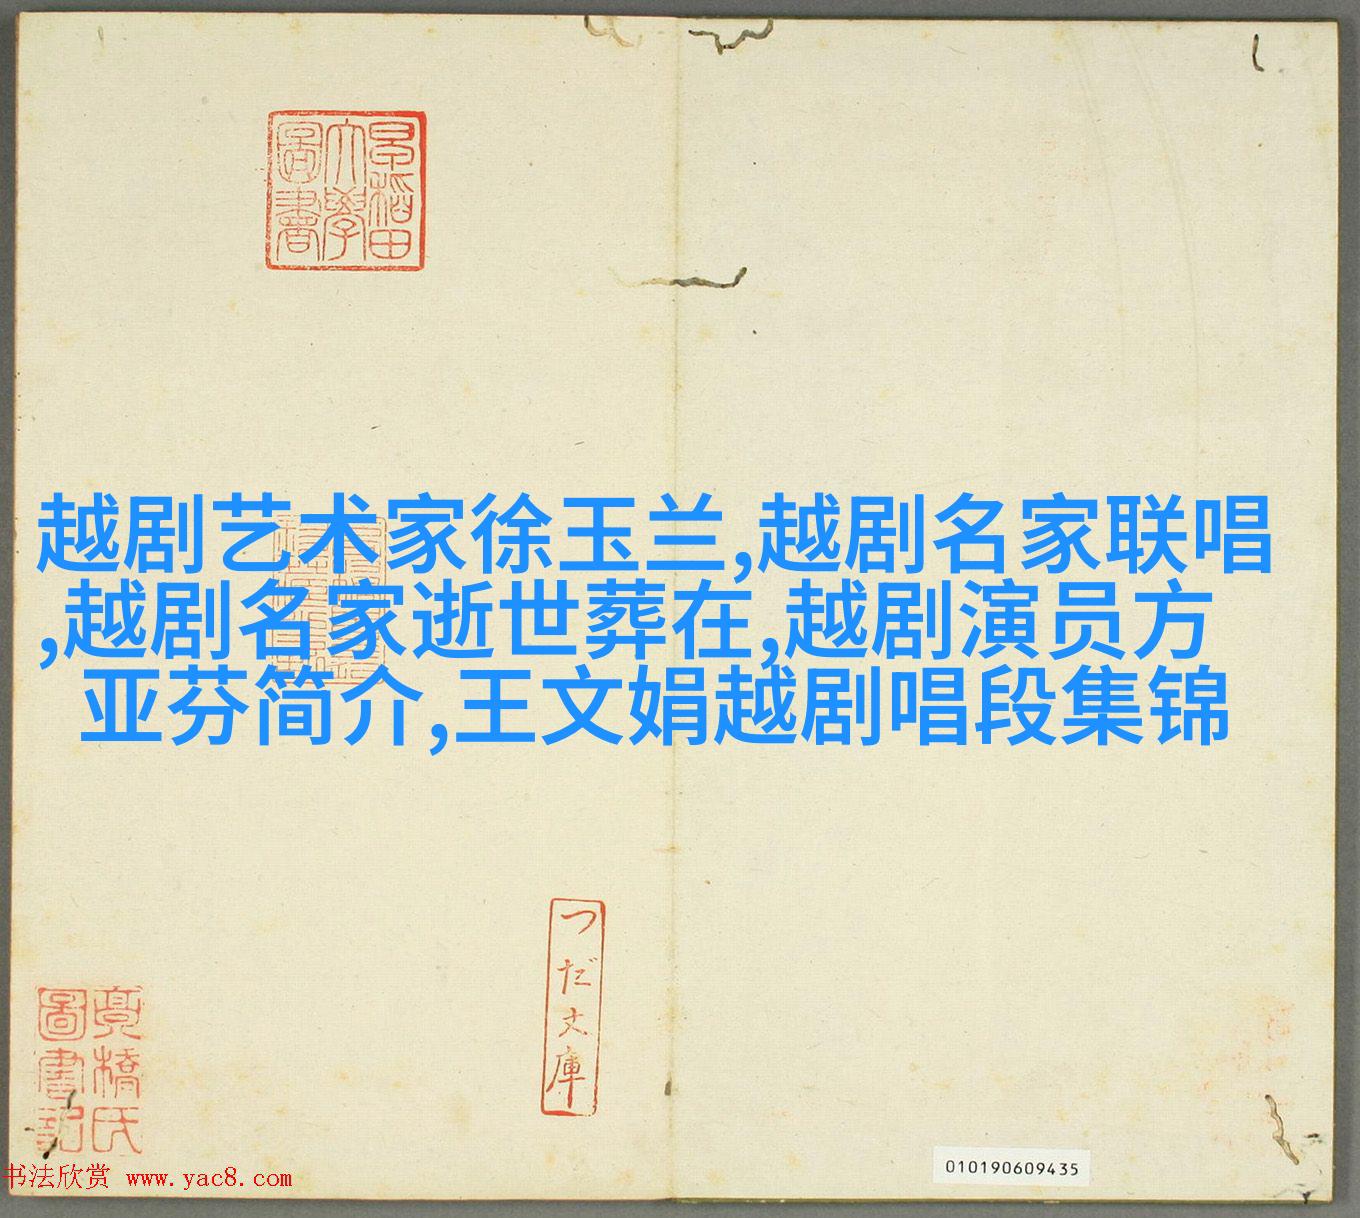 早稲田
大學
圖書
越剧艺术家徐玉兰,越剧名家联唱
,越剧名家逝世葬在,越剧演员方
亚芬简介,王文娟越剧唱段集锦
つだ文庫
橋氏
圖書記
010190609435
书法欣赏 www.yac8.com